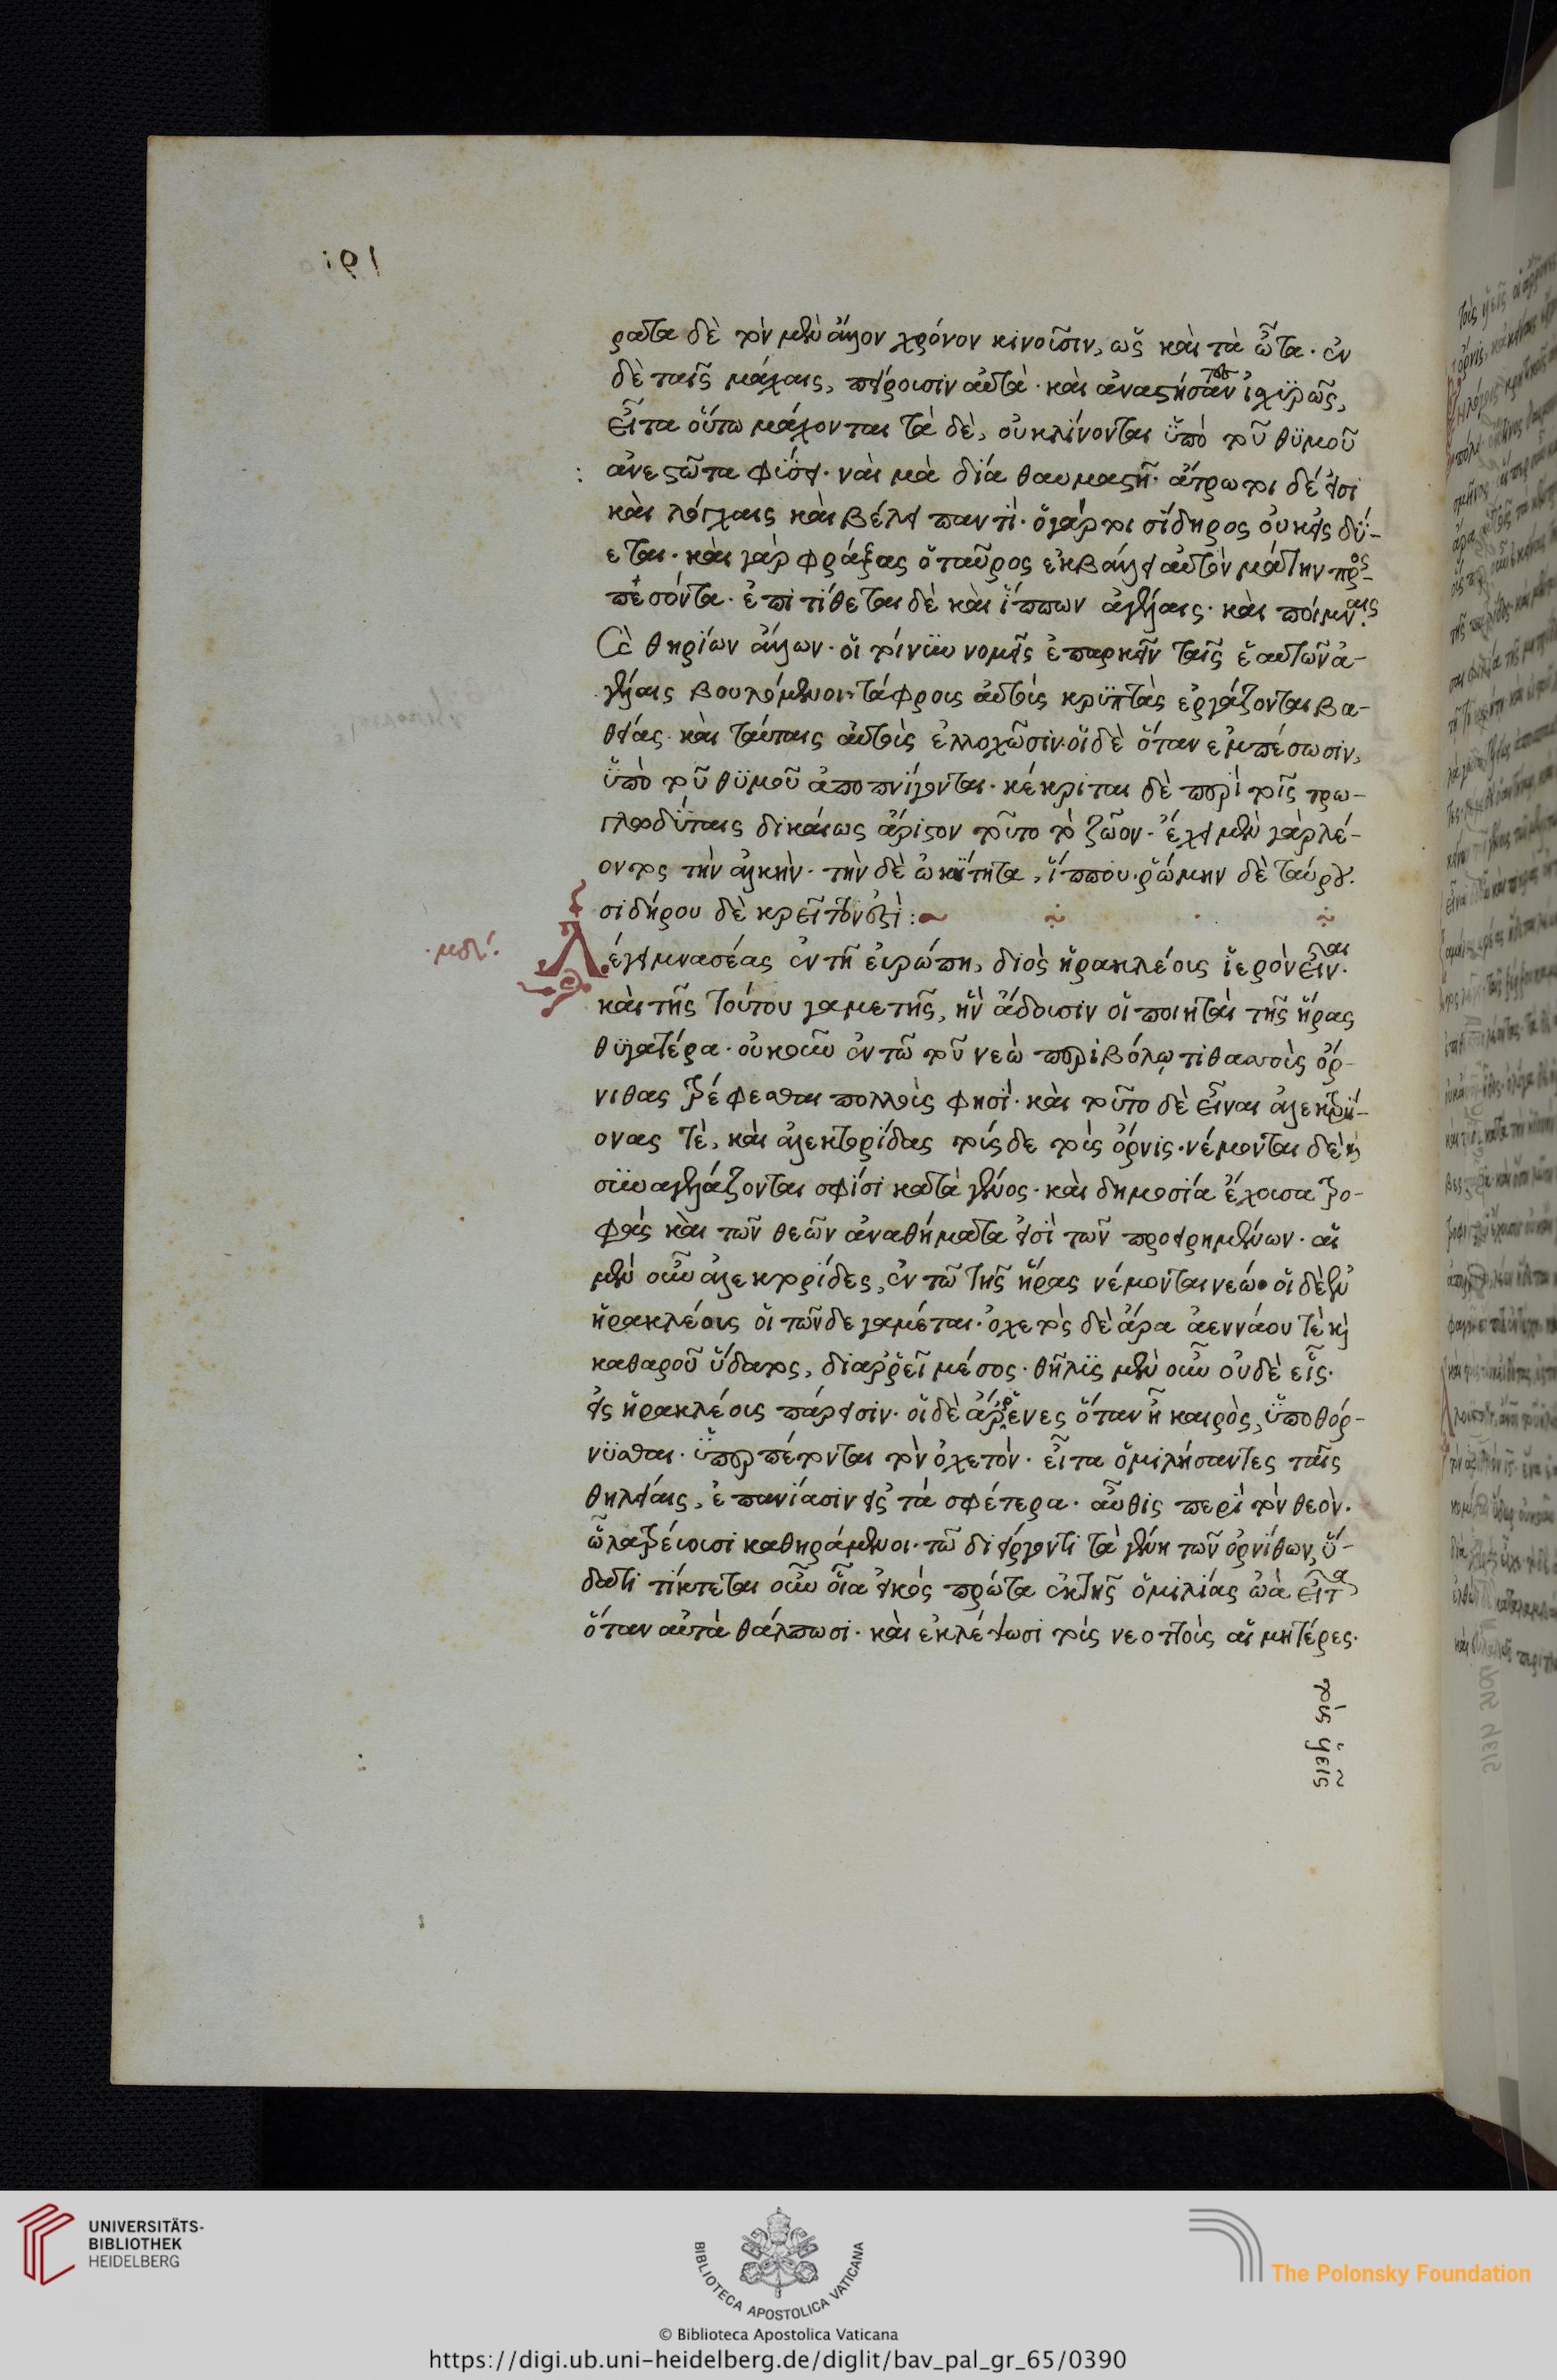 191
ρατα δὲ τὸν μὲν ἄλλον χρόνον κινοῦσιν, ὡς καὶ τὰ ὦτα. ἐν
δὲ ταῖς μάχαις, αὐτὰ. καὶ ἀναστήσαντες ἰσχυρῶς,
εἶτα οὕτω μάχονται τὰ δὲ, οὐ κλίνονται ὑπὸ τοῦ θυμοῦ
ἀνεστῶτα φύσει. ναὶ μὰ δία θαυμαστῆ. ἄτρωτοι δέ εἰσι
καὶ λόγχαις καὶ βέλει παντί. ὁ γάρ τοι σίδηρος οὐκ εἰς δύ-
εται. καὶ γὰρ φράξας ὁ ταῦρος ἐκβάλλει αὐτὸν μάτην προς-
πεσόντα. ἐπιτίθεται δὲ καὶ ἵππων ἀγέλαις. καὶ ποίμναις.
καὶ θηρίων ἄλλων. οἱ τοίνυν νομεῖς ἐπαρκεῖν ταῖς ἑαυτῶν ἀ-
γέλαις βουλόμενοι. τάφρους αὐτοῖς κρυπτὰς ἐργάζονται βα-
θείας. καὶ ταύταις αὐτοὺς ἐλλοχῶσιν. οἱ δὲ ὅταν ἐμπέσωσιν,
ὑπὸ τοῦ θυμοῦ ἀποπνίγονται. κέκριται δὲ παρὰ τοῖς τρω-
γλοδύταις δικαίως ἄριστον τοῦτο τὸ ζῶον. ἔχει μὲν γὰρ λέ-
οντος τὴν ἀλκὴν. τὴν δὲ ὠκύτητα, ἵππου. ῥώμην δὲ ταύρου.
σιδήρου δὲ κρεῖττόν ἐστί:
.μδʹ. Λέγει μνασέας ἐν τῆ εὐρώπη, διὸς ἡρακλέους ἱερὸν εἶναι.
καὶ τῆς τούτου γαμετῆς, ἣν ἄδουσιν οἱ ποιηταὶ τῆς ἥρας
θυγατέρα. οὐκοῦν ἐν τῶ τοῦ νεὼ περιβόλω τιθασοὺς ὄρ-
νιθας τρέφεσθαι πολλοὺς φησί. καὶ τοῦτο δὲ εἶναι ἀλεκτρύ-
ονας τὲ, καὶ ἀλεκτορίδας τούς δε τοὺς ὄρνις. νέμονται δὲ καὶ
συναγελάζονται σφίσι κατὰ γένος. καὶ δημοσία ἔχουσα τρο-
φὰς καὶ τῶν θεῶν ἀναθήματα εἰσὶ τῶν προειρημένων. αἱ
μὲν οὖν ἀλεκτορίδες, ἐν τῶ τῆς ἥρας νέμονται νεώ. οἱ δὲ ἐν
ἡρακλέους οἱ τῶνδε γαμέται. ὀχετὸς δὲ ἄρα ἀεννάου τὲ καὶ
καθαροῦ ὕδατος, διαρρεῖ μέσος. θῆλυς μὲν οὖν οὐδὲ εἷς.
εἰς ἡρακλέους πάρεισιν. οἱ δὲ ἄρρενες ὅταν ἦ καιρὸς, ὑποθόρ-
νυσθαι. ὑπερπέτονται τὸν ὀχετόν. εἶτα ὁμιλήσαντες ταῖς
θηλείαις, ἐπανίασιν εἰς τὰ σφέτερα. αὖθις περὶ τὸν θεὸν.
ὧ λατρεύουσι καθηράμενοι. τῶ διείργοντι τὰ γένη τῶν ὀρνίθων, ὕ-
δατι τίκτεται οὖν οἷα εἰκός πρῶτα ἐκ τῆς ὁμιλίας ὠὰ εἶτα
ὅταν αὐτὰ θάλπωσι. καὶ ἐκλέψωσι τοὺς νεοττοὺς αἱ μητέρες.
τοὺς
UNIVERSITÄTS-
BIBLIOTHEK
HEIDELBERG
BIBLIOTECA APOSTOLICA VATICANA
The Polonsky Foundation
© Biblioteca Apostolica Vaticana
https://digi.ub.uni-heidelberg.de/diglit/bav_pal_gr_65/0390